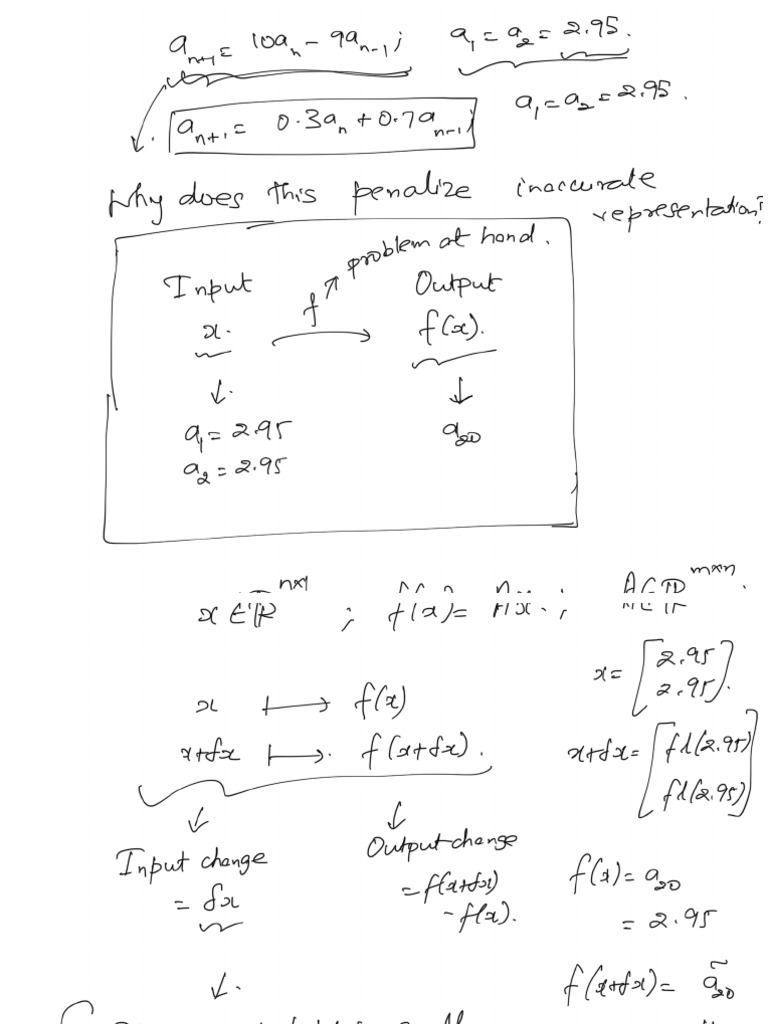 a_{n+1} = 10a_n - 9a_{n-1}; a_1 = a_2 = 2.95.
a_{n+1} = 0.3a_n + 0.7a_{n-1}; a_1 = a_2 = 2.95.
Why does this penalize inaccurate
representation?
problem at hand.
Input f Output
x. f(x).
a_1 = 2.95 a_20
a_2 = 2.95
x ∈ ℝ^{n×1} ; f(x) = Ax. ; A ∈ ℝ^{m×n}.
x = [2.95
2.95].
x ↦ f(x)
x+δx ↦ f(x+δx).
x+δx = [fl(2.95)
fl(2.95)]
Input change
= δx
Output change
= f(x+δx)
- f(x).
f(x) = a_20
= 2.95
f(x+δx) = ã_20